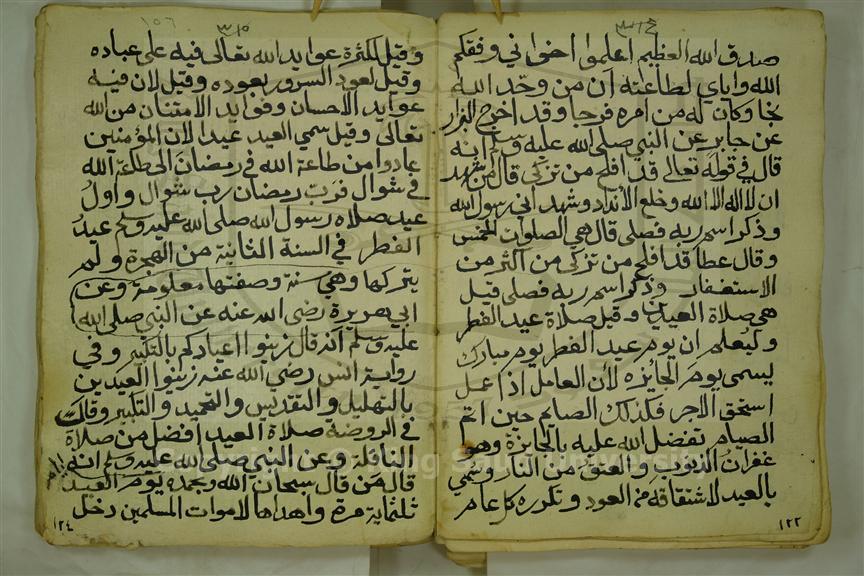 ٣١٤
صدق الله العظيم اعلموا اخواني وفقكم
الله واياي لطاعته ان من وحد الله
نجا وكان له من امره فرجا وقد اخرج البزار
عن جابر عن النبي صلى الله عليه وسلم انه
قال في قوله تعالى قد افلح من تزكى قال من شهد
ان لا اله الا الله وخلع الأنداد وشهد اني رسول الله
وذكر اسم ربه فصلى قال هي الصلوات الخمس
وقال عطا قد افلح من تزكى من اكثر من
الاستغفار وذكر اسم ربه فصلى قيل
هي صلاة العيدين وقيل صلاة عيد الفطر
وليعلم ان يوم عيد الفطر يوم مبارك
يسمى يوم الجايزه لأن العامل اذا عمل
استحق الاجر فكذلك الصايم حين اتم
الصيام تفضل الله عليه بالجايزة وهو
غفران الذنوب والعتق من النار وسمي
بالعيد لاشتقاقه من العود وتكرره كل عام
١٢٣
١٥٦
٣١٥
وقيل لكثرة عوايد الله تعالى فيه على عباده
وقيل لعود السرور بعوده وقيل لان فيه
عوايد الاحسان وفوايد الامتنان من الله
تعالى وقيل سمي العيد عيدا لان المؤمنين
عادوا من طاعة الله في رمضان الى طاعة الله
في شوال فرب رمضان رب شوال واول
عيد صلاه رسول الله صلى الله عليه وسلم عيد
الفطر في السنة الثانية من الهجرة ولم
يتركها وهي سنة وصفتها معلومة وعن
ابي هريرة رضى الله عنه عن النبي صلى الله
عليه وسلم انه قال زينوا اعيادكم بالتكبير وفي
رواية انس رضي الله عنه زينوا العيدين
بالتهليل والتقديس والتحميد والتكبير وقال
في الروضة صلاة العيد افضل من صلاة
النافلة وعن النبي صلى الله عليه وسلم انه
قال من قال سبحان الله وبحمده يوم العيد
ثلثماية مرة واهداها لاموات المسلمين دخل
١٢٤